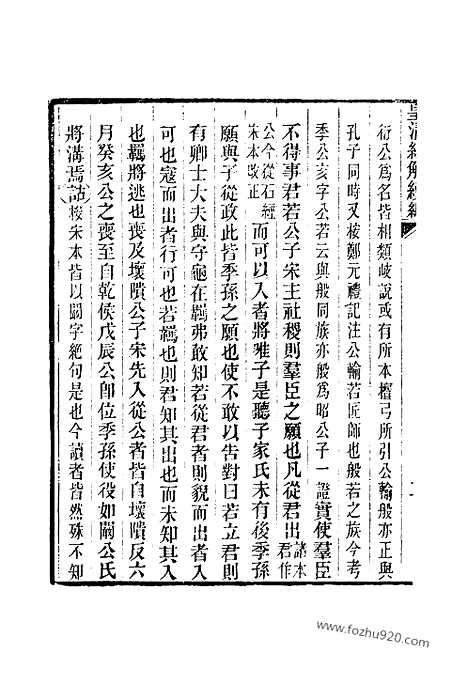 皇清經解續編
衍公爲名皆相類歧說或有所本檀弓所引公輸般亦正與
孔子同時又梭鄭元禮記注公輸若匠師也般若之族今考
季公亥字公若云與般同族亦般爲昭公子一證實使羣臣
不得事君若公子宋主社稷則羣臣之願也凡從君出諸本君作
公今從石經宋本改正而可以入者將唯子是聽子家氏未有後季孫
願與子從政此皆季孫之願也使不敢以告對曰若立君則
有卿士大夫與守龜在羈弗敢知若從君者則貌而出者入
可也寇而出者行可也若羈也則君知其出也而未知其入
也羈將逃也喪及壞隤公子宋先入從公者皆自壞隤反六
月癸亥公之喪至自乾侯戊辰公卽位季孫使役如闞公氏
將溝焉詁梭朱本皆以闞字絕句是也今讀者皆然殊不知
www.fozhu920.com